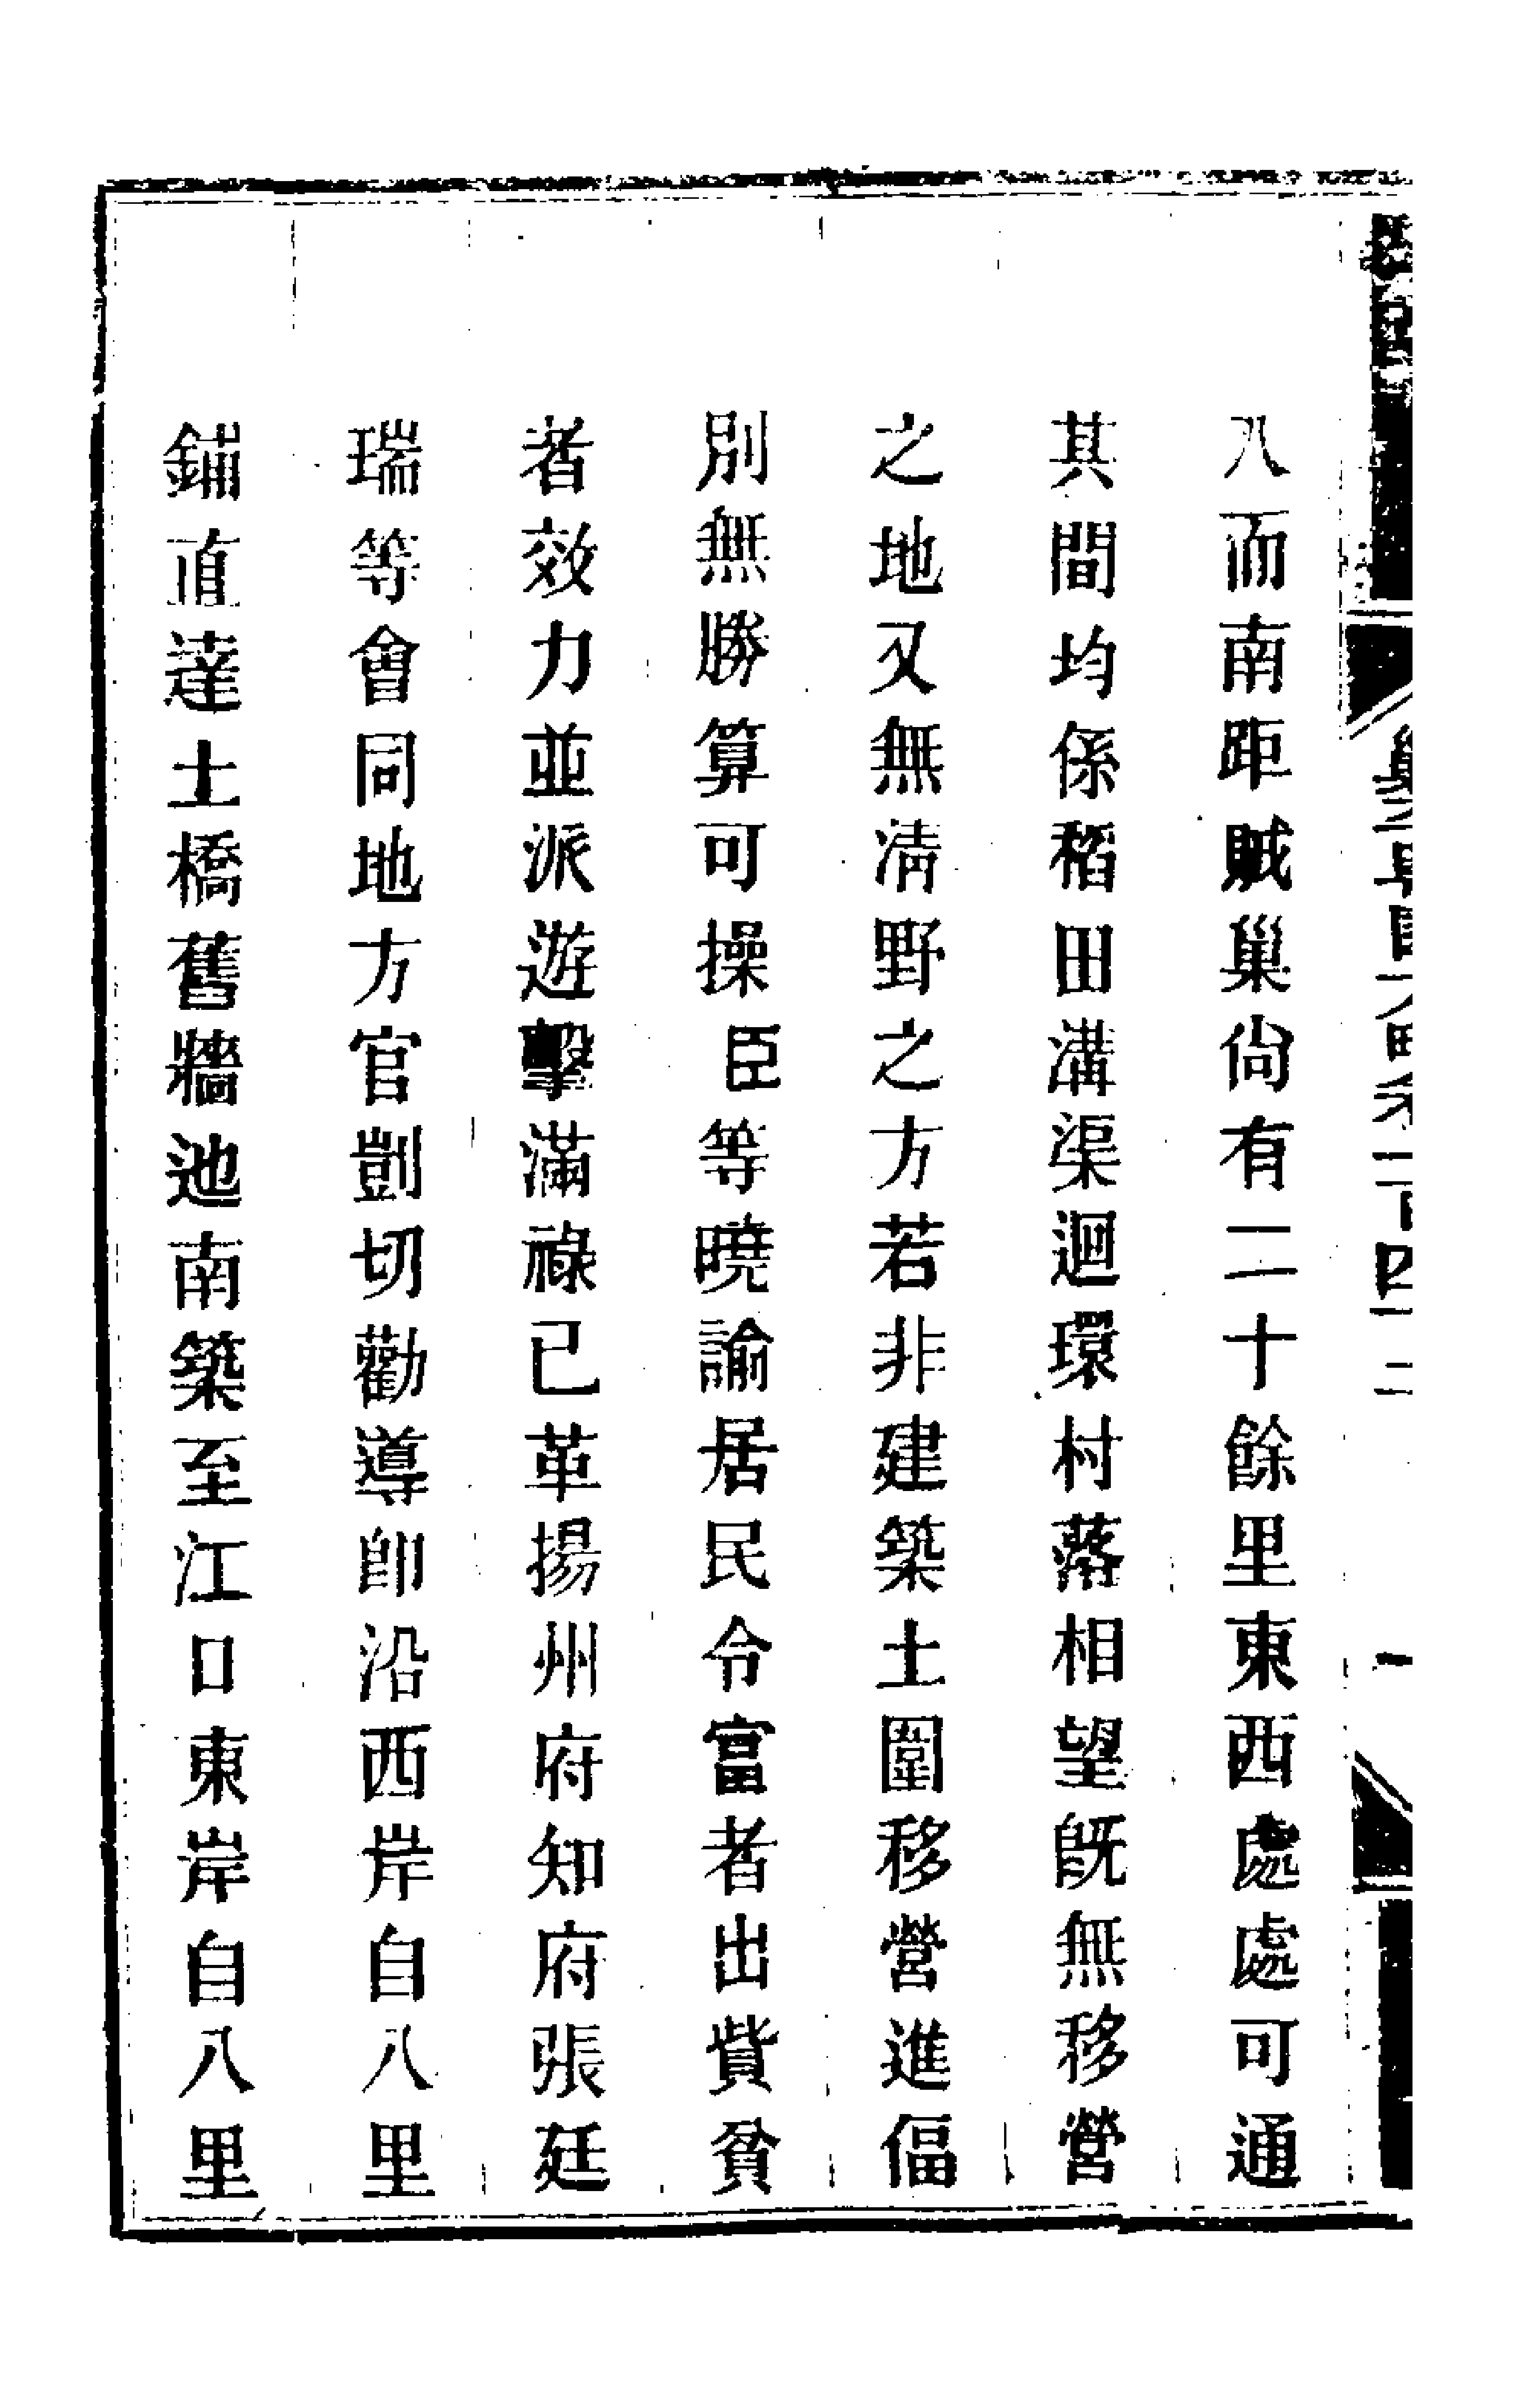 八而南距賊巢尙有二十餘里東西處處可通
其間均係稻田溝渠迴環村落相望旣無移營
之地又無清野之方若非建築土圍移營進偪
別無勝算可操臣等曉諭居民令富者出貲貧
者效力並派遊擊滿祿已革揚州府知府張廷
瑞等會同地方官剴切勸導卽沿西岸自八里
鋪直達土橋舊牆迆南築至江口東岸自八里